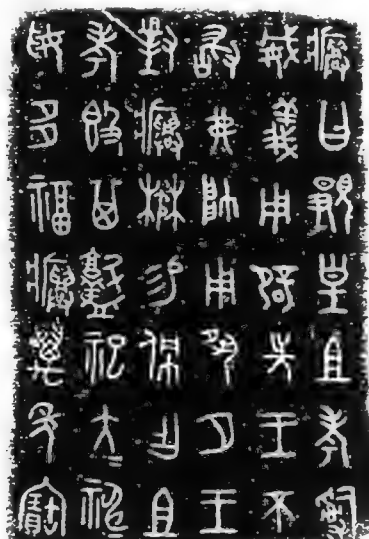 𤼈曰䫜皇且考𤔲
威義用辟先王不
敢弗帥用夙夕王
對𤼈楙易佩乍且
考𣪘其𢑴祀大神
妥多福𤼈萬年寶